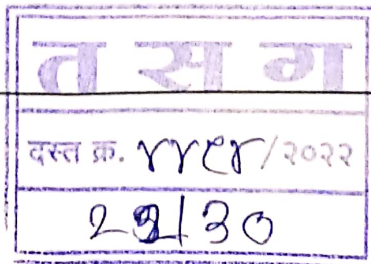 त स ग
दस्त क्र. ४४९४/२०२२
/30